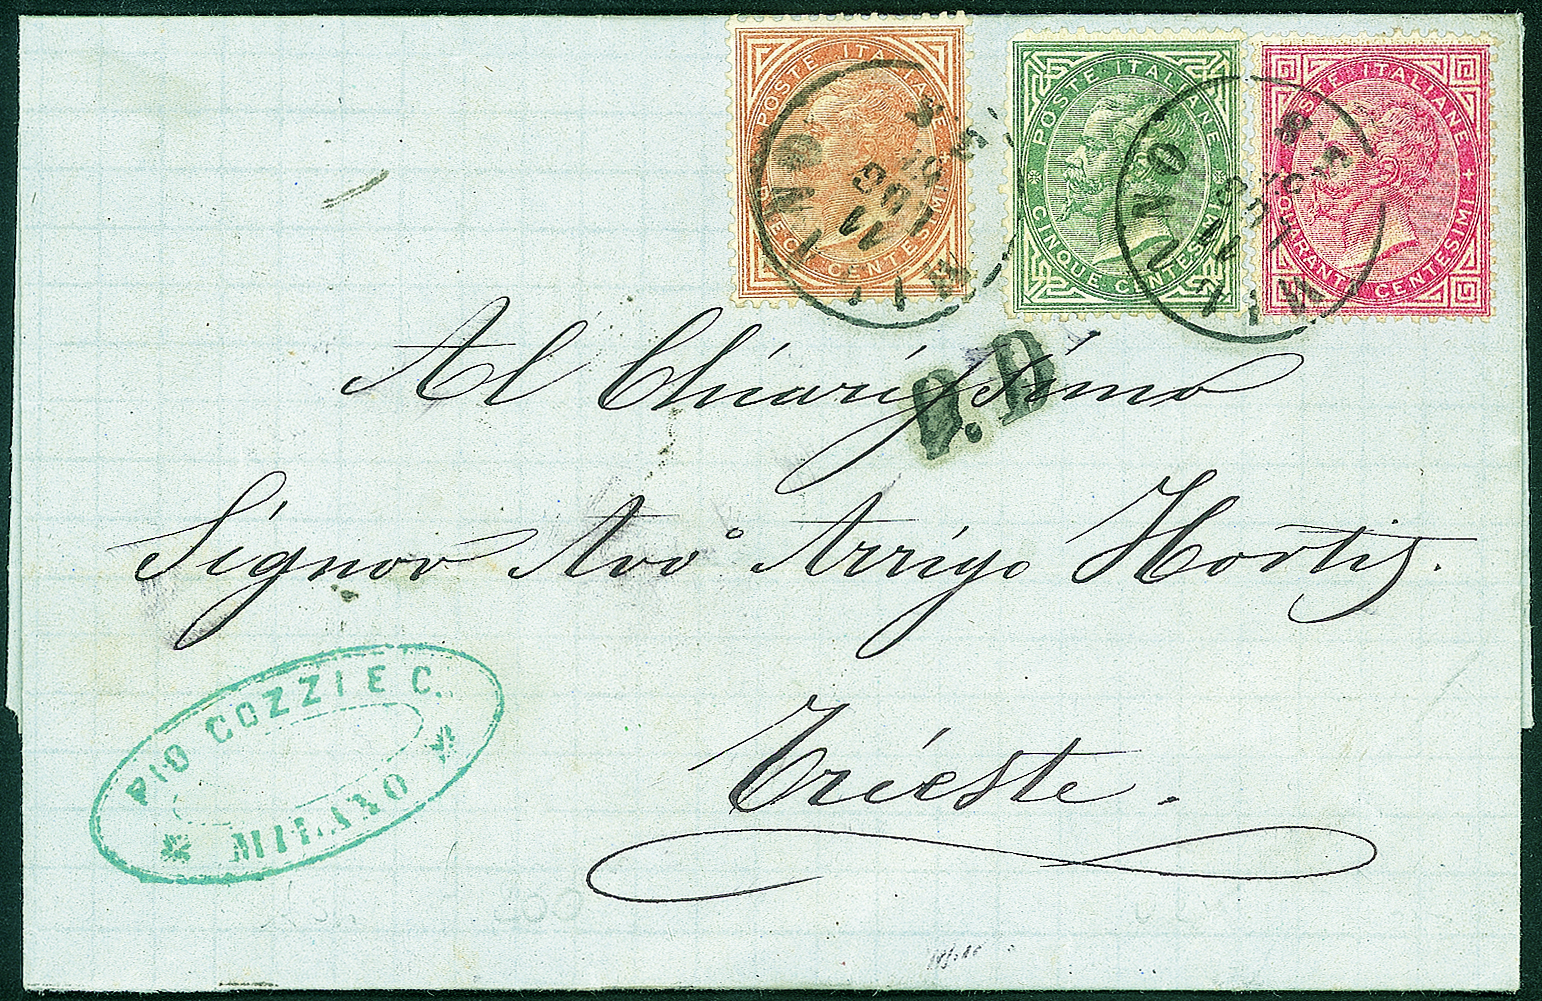 POSTE ITALIANE
DIECI CENTESIMI
POSTE ITALIANE
CINQUE CENTESIMI
POSTE ITALIANE
QUARANTA CENTESIMI
MILANO
MILANO
P.D.
Al Chiarissimo
Signor Avv° Arrigo Hortis.
Trieste.
PIO COZZI E C.
MILANO
200